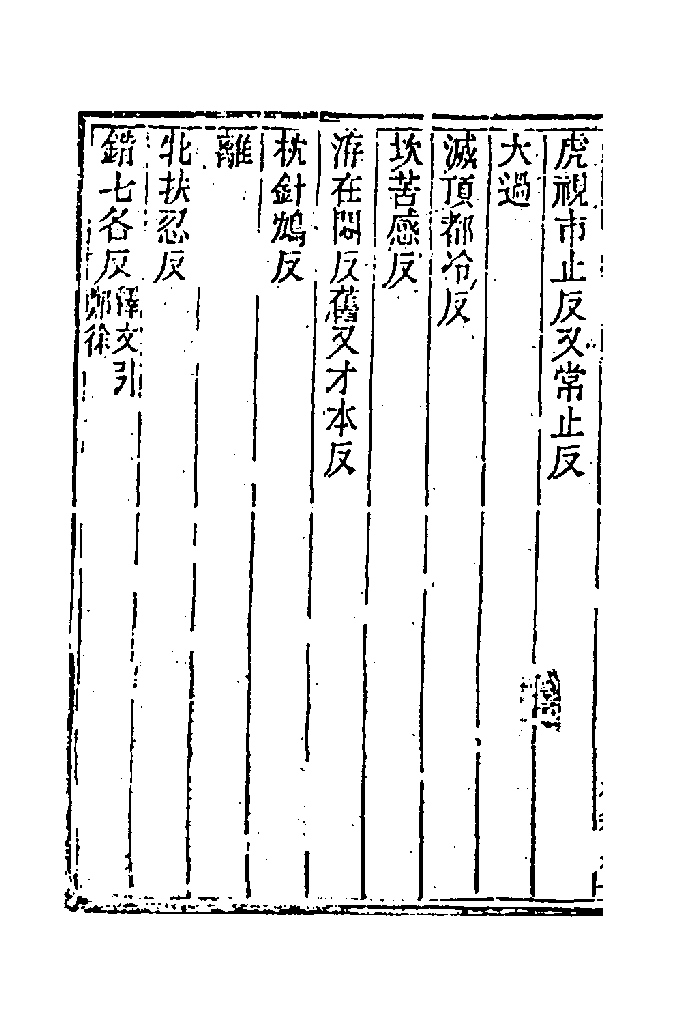 虎視市止反又常止反
大過
滅頂都冷反
坎苦感反
洊在悶反舊又才本反
枕針鴆反
離
牝扶忍反
錯七各反釋文引
鄭徐